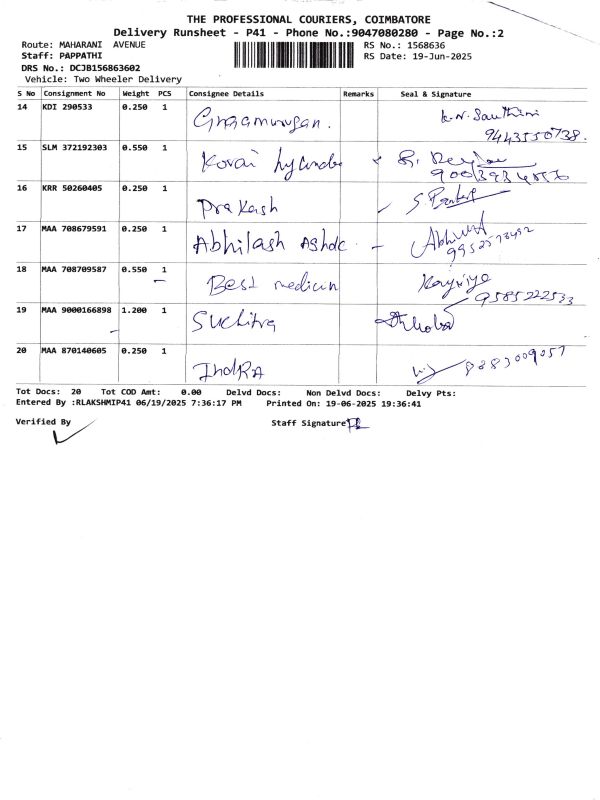 THE PROFESSIONAL COURIERS, COIMBATORE
Delivery Runsheet - P41 - Phone No.:9047080280 - Page No.:2
Route: MAHARANI AVENUE RS No.: 1568636
Staff: PAPPATHI RS Date: 19-Jun-2025
DRS No.: DCJB156863602
Vehicle: Two Wheeler Delivery
S No Consignment No Weight PCS Consignee Details Remarks Seal & Signature
14 KDI 290533 0.250 1
9443550738.
15 SLM 372192303 0.550 1 Kovai
16 KRR 50260405 0.250 1 Prakash
17 MAA 708679591 0.250 1 Abhilash Ashok
18 MAA 708709587 0.550 1 Best medicin
9585222533
19 MAA 9000166898 1.200 1 Suchitra
20 MAA 870140605 0.250 1 IndRA
Tot Docs: 20 Tot COD Amt: 0.00 Delvd Docs: Non Delvd Docs: Delvy Pts:
Entered By :RLAKSHMIP41 06/19/2025 7:36:17 PM Printed On: 19-06-2025 19:36:41
Verified By Staff Signature